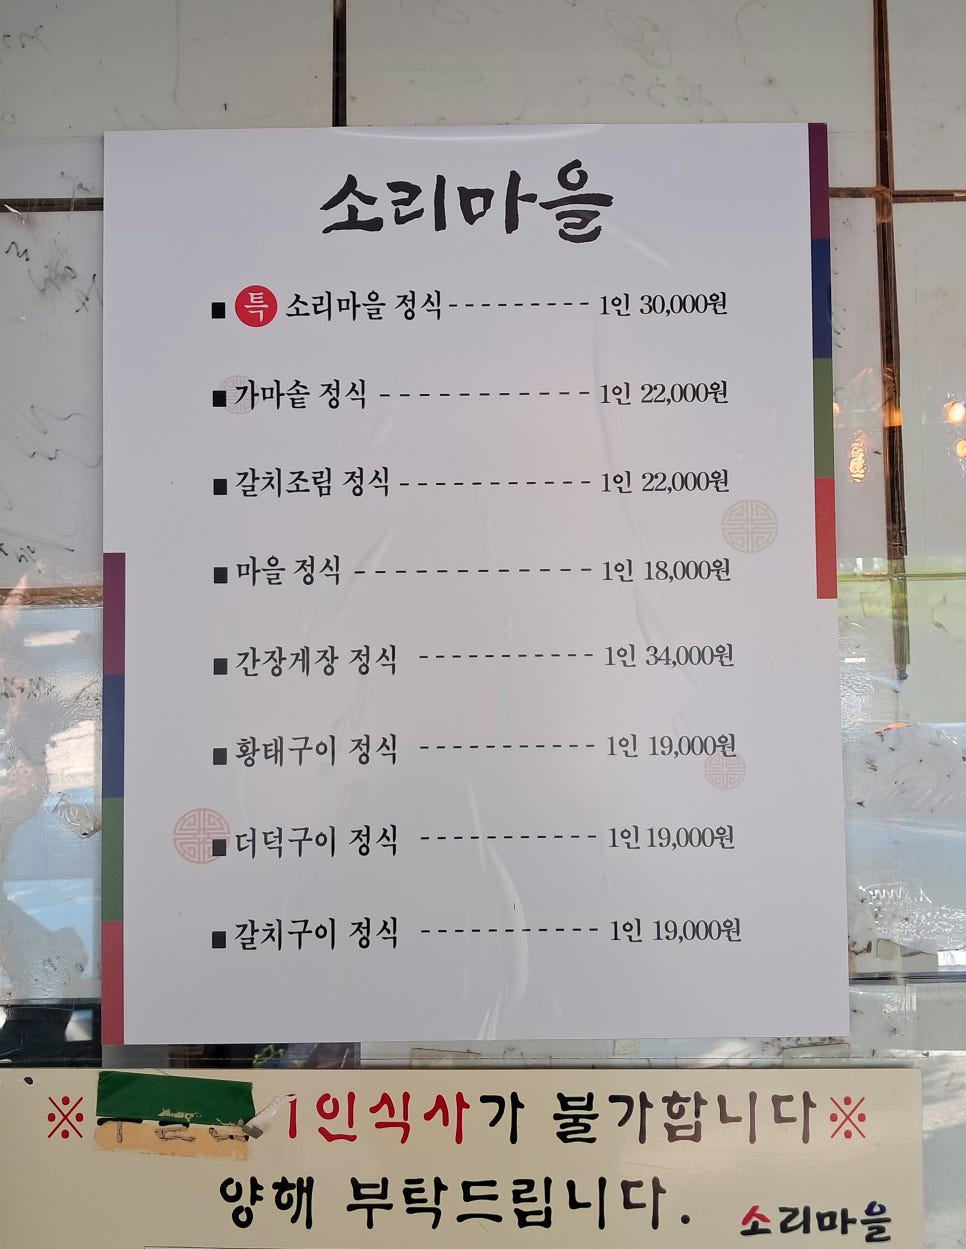 소리마을
■ 특 소리마을 정식 - - - - - - - - - 1인 30,000원
■ 가마솥 정식 - - - - - - - - - - - - 1인 22,000원
■ 갈치조림 정식 - - - - - - - - - - - 1인 22,000원
■ 마을 정식 - - - - - - - - - - - - - 1인 18,000원
■ 간장게장 정식 - - - - - - - - - - 1인 34,000원
■ 황태구이 정식 - - - - - - - - - - 1인 19,000원
■ 더덕구이 정식 - - - - - - - - - - 1인 19,000원
■ 갈치구이 정식 - - - - - - - - - - 1인 19,000원
※ 1인식사가 불가합니다※
양해 부탁드립니다.
소리마을